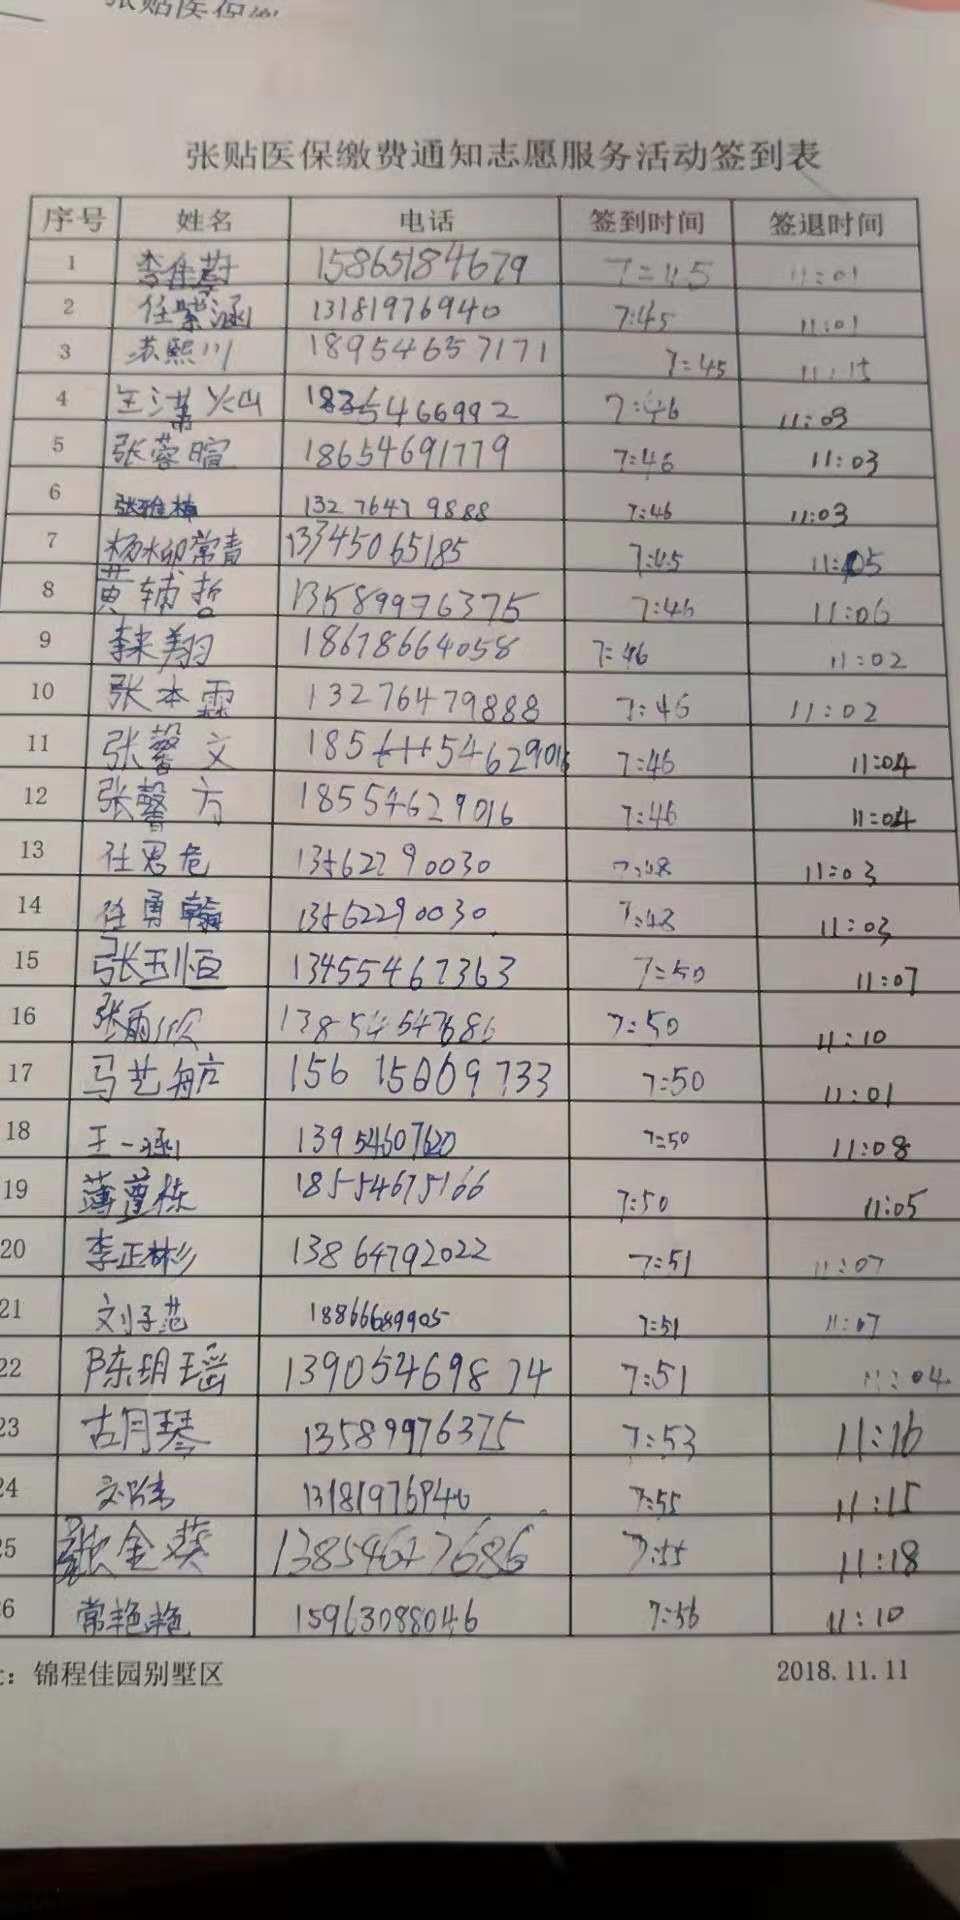 张贴医保缴费通知志愿服务活动签到表
序号 姓名 电话 签到时间 签退时间
1 李佳蔚 15865184679 7:45 11:01
2 任紫涵 13181976940 7:45 11:01
3 苏熙川 18954657171 7:45 11:15
4 5466992 7:46 11:03
5 张蓉暄 18654691779 7:46 11:03
6 张雅楠 13276479888 7:46 11:03
7 杨柳常青 13345065185 7:45 11:05
8 黄辅哲 13589976375 7:46 11:06
9 李来翔 18678664058 7:46 11:02
10 张本霖 13276479888 7:46 11:02
11 张馨文 18554629016 7:46 11:04
12 张馨方 18554629016 7:46 11:04
13 任思危 13562290030 7:48 11:03
14 任勇翰 13562290030 7:48 11:03
15 张玉恒 13455467363 7:50 11:07
16 张雨欣 13854547686 7:50 11:10
17 马艺航 15615609733 7:50 11:01
18 王一涵 13954607620 7:50 11:08
19 薄萱栋 18554675166 7:50 11:05
20 李正彬 13864792022 7:51 11:07
21 刘子范 18866689905 7:51 11:07
22 陈玥瑶 13905469874 7:51 11:04
23 古月琴 13589976375 7:53 11:16
24 13181976940 7:55 11:15
25 金葵 13854647686 7:55 11:18
26 常艳艳 15963088046 7:56 11:10
：锦程佳园别墅区 2018.11.11